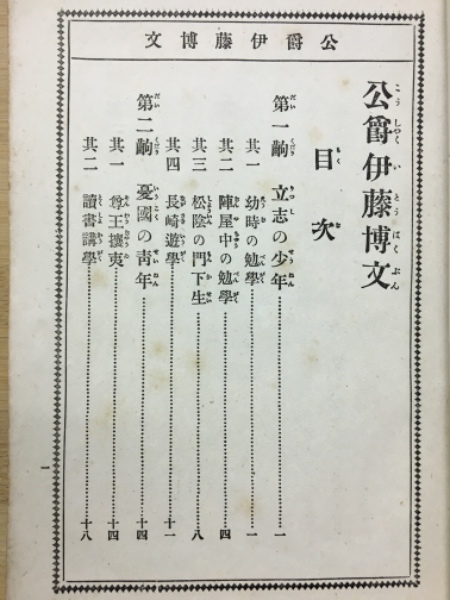 文博藤伊爵公
公爵伊藤博文
目次
第一齣 立志の少年…………一
其一 幼時の勉學…………一
其二 陣屋中の勉學…………四
其三 松陰の門下生…………八
其四 長崎遊學…………十一
第二齣 憂國の靑年…………十四
其一 尊王攘夷…………十四
其二 讀書講學…………十八
一